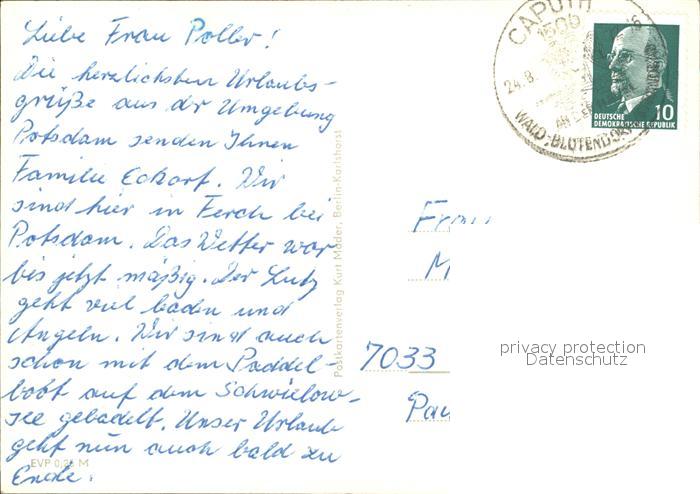 Liebe Frau Poller!
Die herzlichsten Urlaubs-
grüße aus dr Umgebung
Potsdam senden Ihnen
Familie Eckart. Wir
sind hier in Ferch bei
Potsdam. Das Wetter war
bis jetzt mäßig. Der Lutz
geht viel baden und
Angeln. Wir sind auch
schon mit dem Paddel-
boot auf dem Schwielow-
see gebadelt. Unser Urlaub
geht nun auch bald zu
Ende.
EVP 0,25 M
Postkartenverlag Kurt Mader, Berlin-Karlshorst
CAPUTH
1506
24.8.
WALD-BLÜTENDORF
DEUTSCHE
DEMOKRATISCHE REPUBLIK
10
Frau
M
7033
Pau
privacy protection
Datenschutz